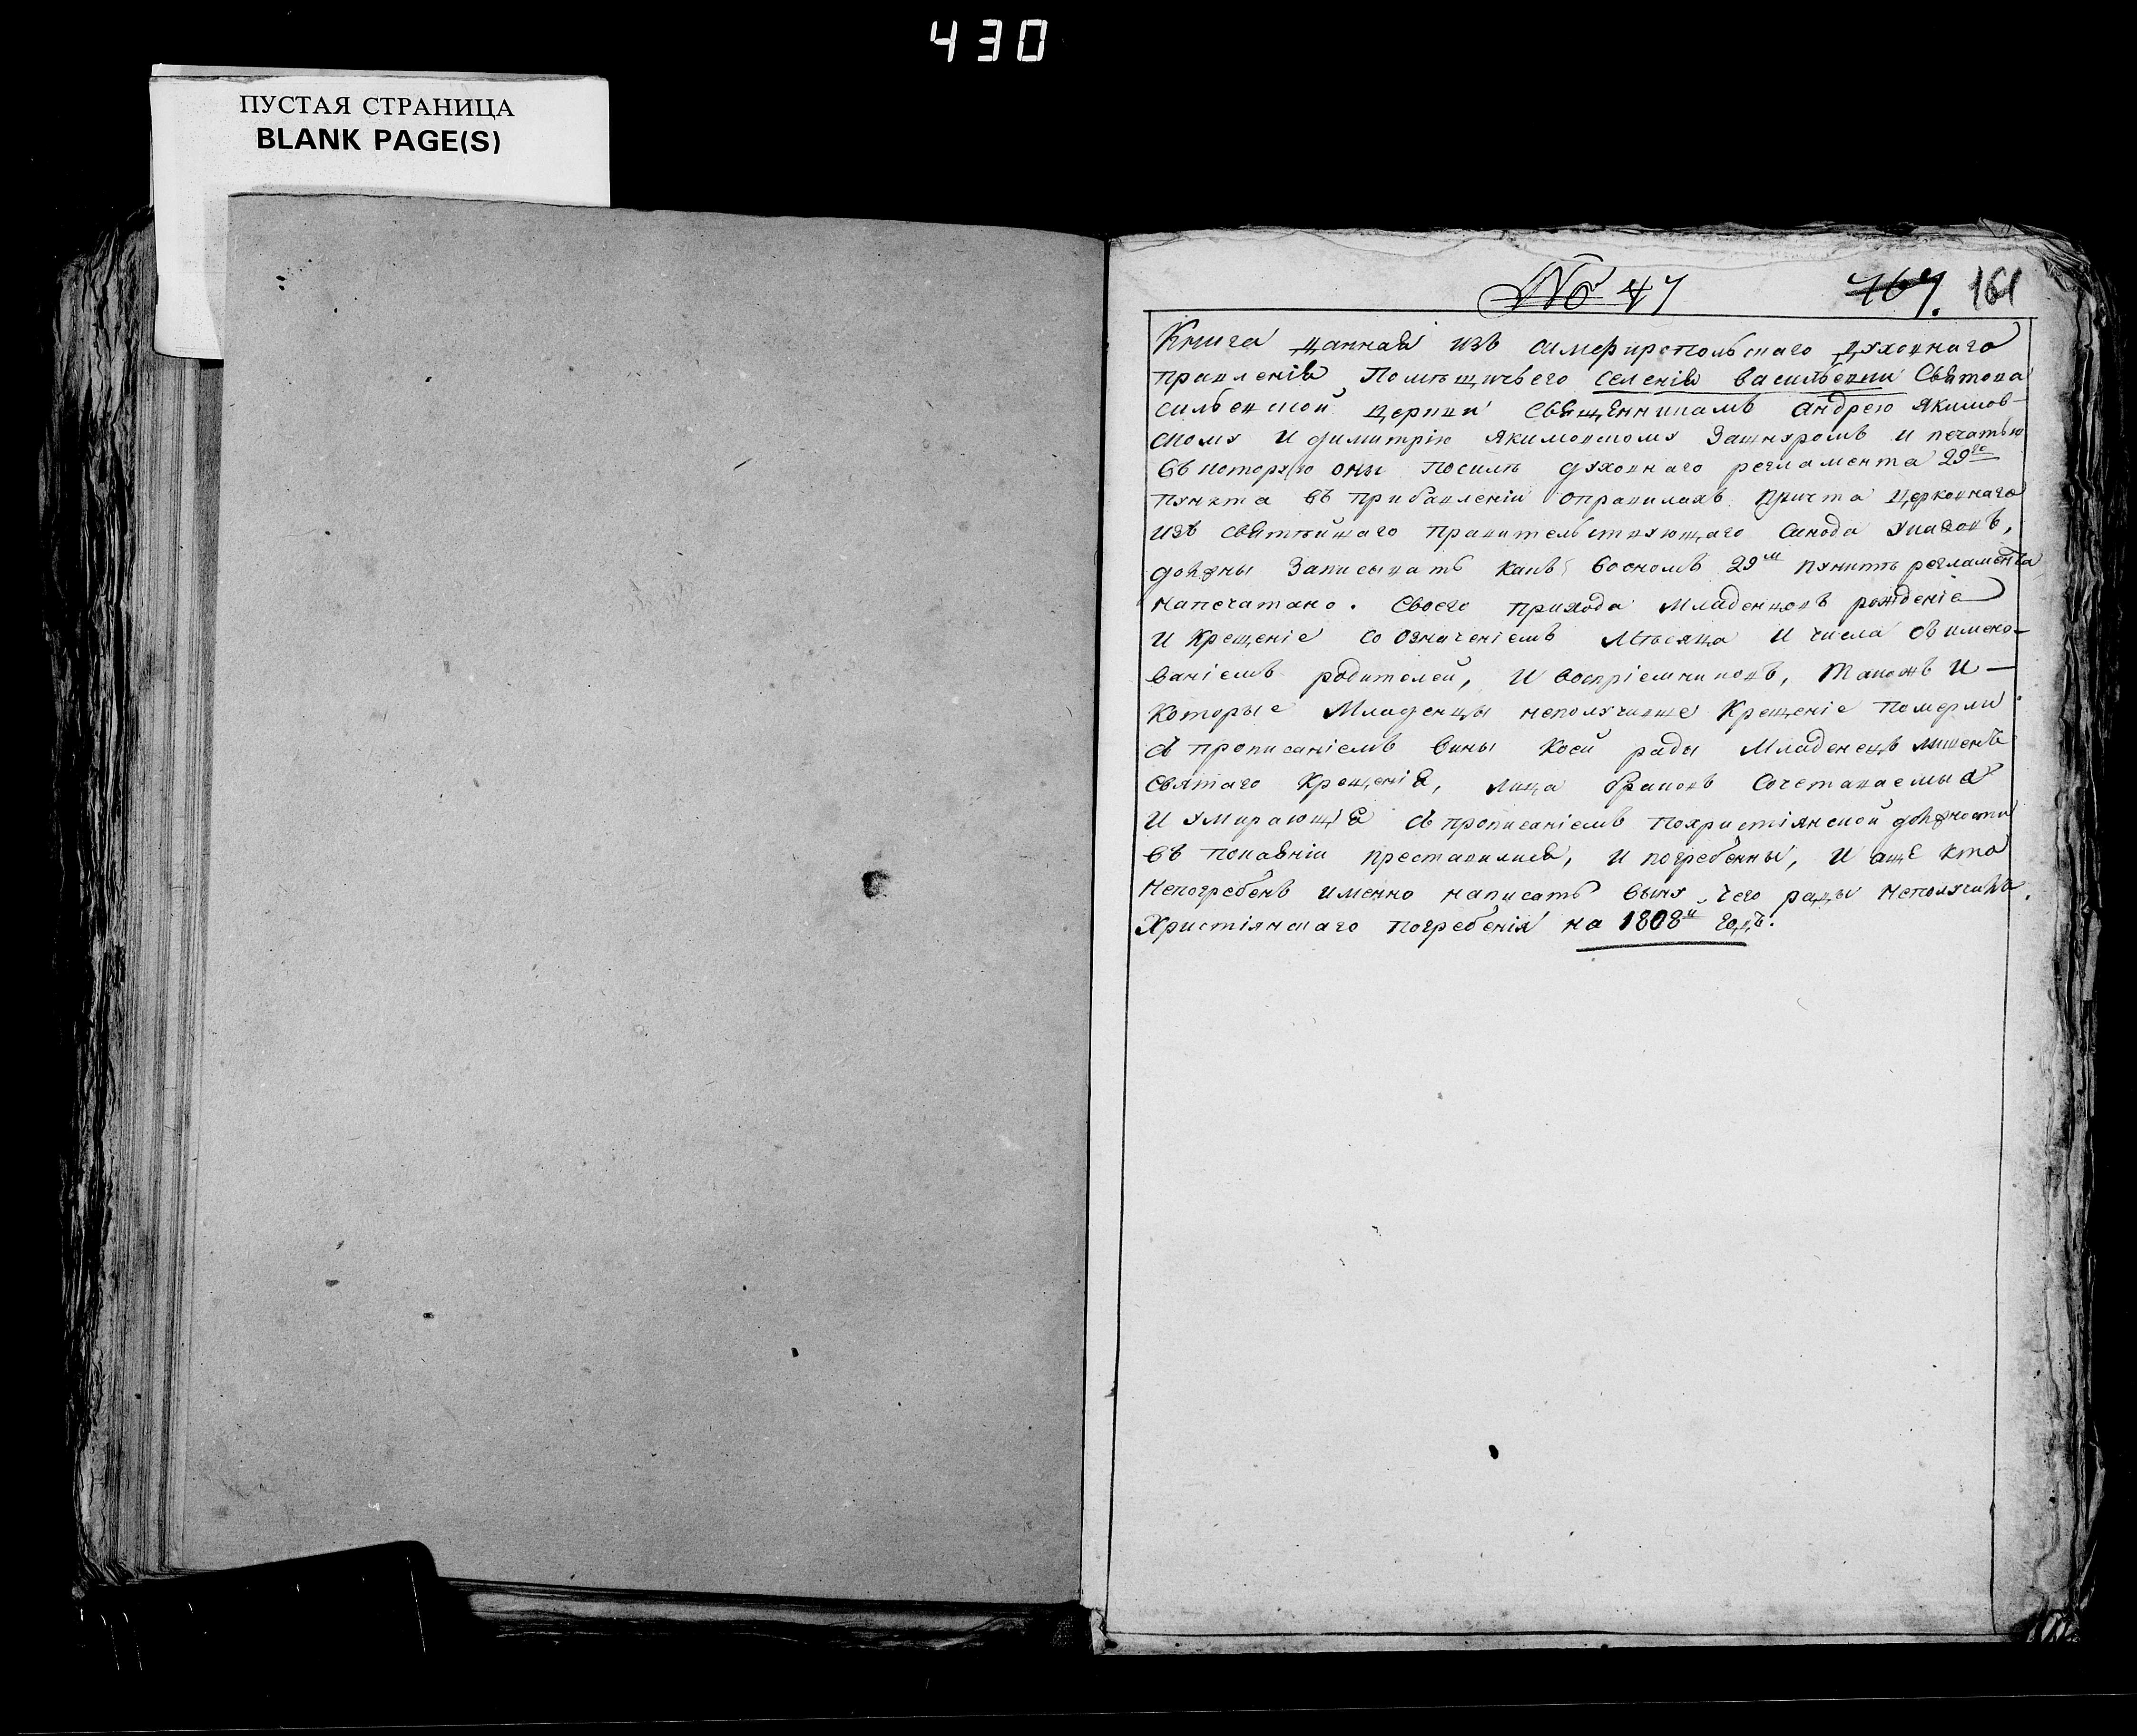 430
ПУСТАЯ СТРАНИЦА
BLANK PAGE(S)
№ 47 767. 161
Книга данная изъ симферопольскаго духовнаго
правленія Помѣщичьего селенія васильевки Святова
сильевской церкви священникамъ андрею якимов-
скому и димитрію якимовскому За шнуромъ и печатью
въ которую оны посилѣ духовнаго регламента 29го
пункта въ прибавленіи оправилахъ причта церковнаго
изъ святѣйшаго правительствующаго синода указовъ,
должны записывать какъ восномъ 29м пунктѣ регламента
напечатано. своего прихода младенцовъ рожденіе
и крещеніе со означеніемъ мѣсяца и числа съ имено-
ваніемъ родителей, и воспріемниковъ, такожъ и —
которые младенцы неполучивше крещеніе померли
съ прописаніемъ вины коей рады младенецъ лишенъ
святаго крещеніа, лица браковъ сочетаваемыа
и умирающіа съ прописаніемъ похристіянской должности
въ покаяніи преставилися, и погребенны, и аще кто
непогребенъ именно написать вину чего рады неполучилъ
христіянскаго погребенія на 1808й годъ.